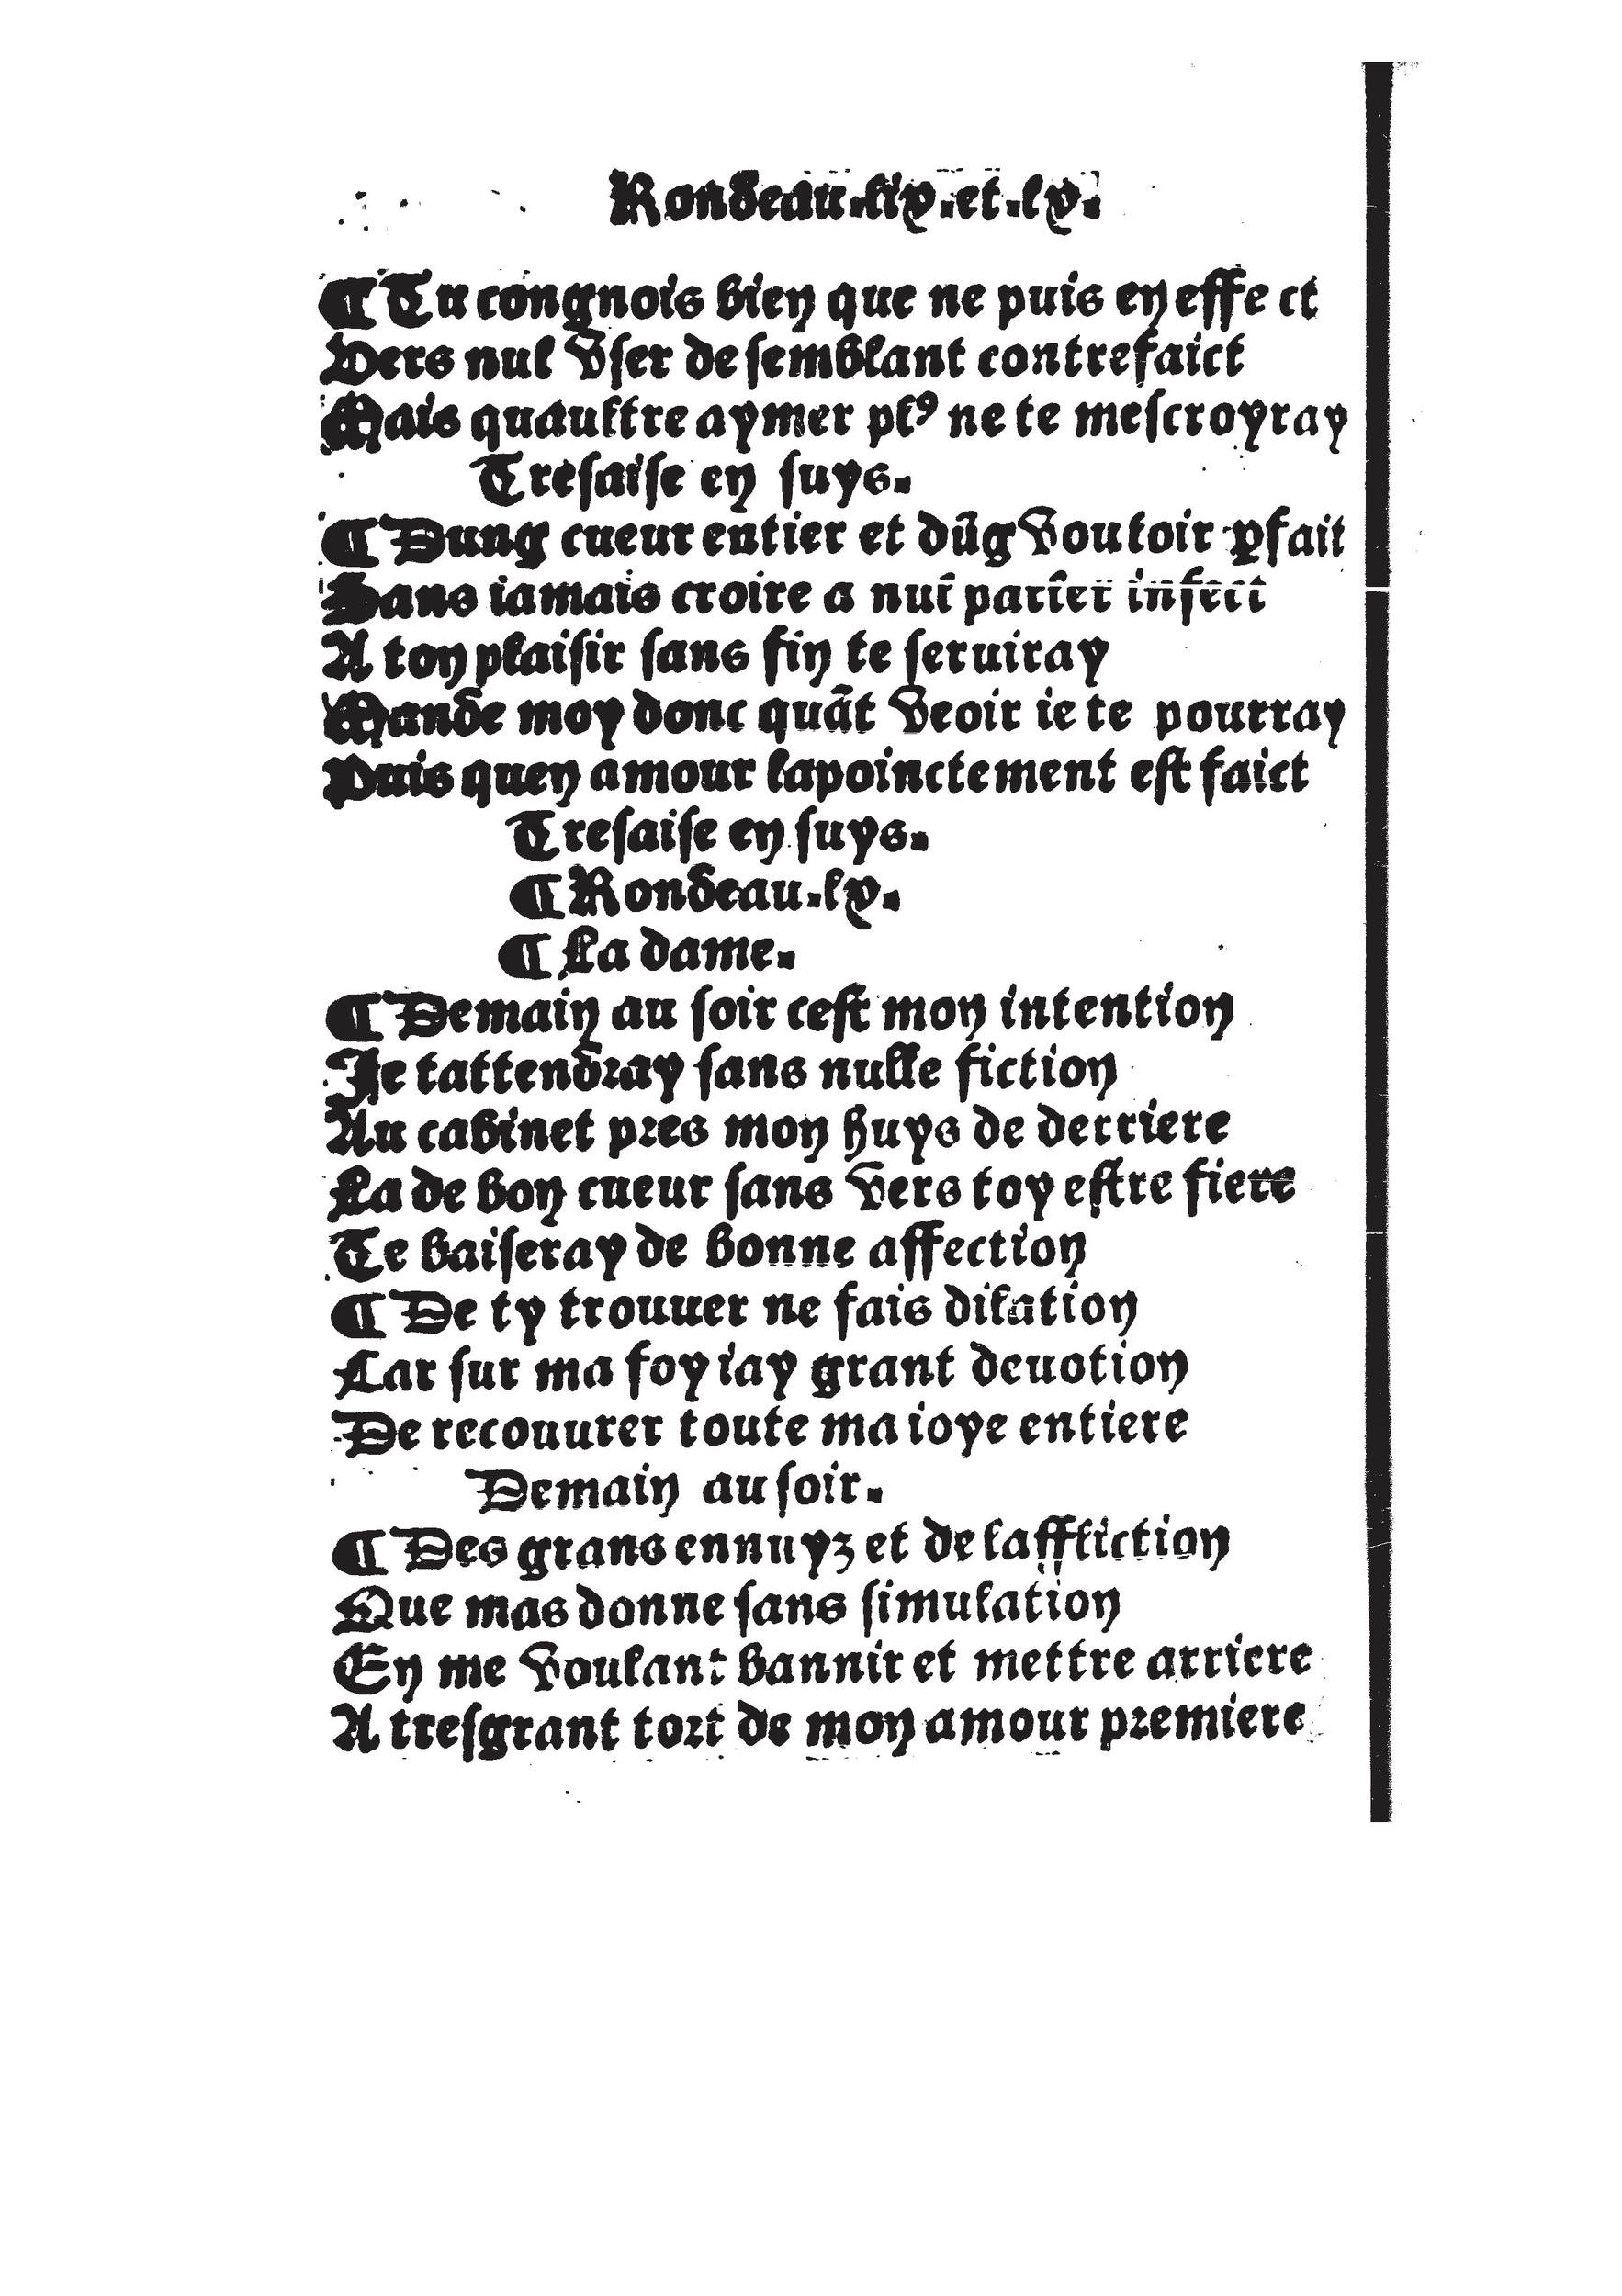 Rondeau.liv.et.lv.
¶ Tu congnois bien que ne puis en effect
Vers nul vser de semblant contrefaict
Mais quaultre aymer plꝰ ne te mescroyray
Tresaise en suys.
¶ Dung cueur entier et dũg vouloir ꝑfait
Sans iamais croire a nul parler infect
A ton plaisir sans fin te seruiray
Mande moy donc quãt veoir ie te pourray
Puis quen amour lapoinctement est faict
Tresaise en suys.
¶ Rondeau.lv.
¶ La dame.
¶ Demain au soir cest mon intention
Je tattendray sans nulle fiction
Au cabinet pres mon huys de derriere
La de bon cueur sans vers toy estre fiere
Te baiseray de bonne affection
¶ De ty trouuer ne fais dilation
Car sur ma foy iay grant deuotion
De recouurer toute ma ioye entiere
Demain au soir.
¶ Des grans ennuyz et de laffliction
Que mas donne sans simulation
En me voulant bannir et mettre arriere
A tresgrant tort de mon amour premiere